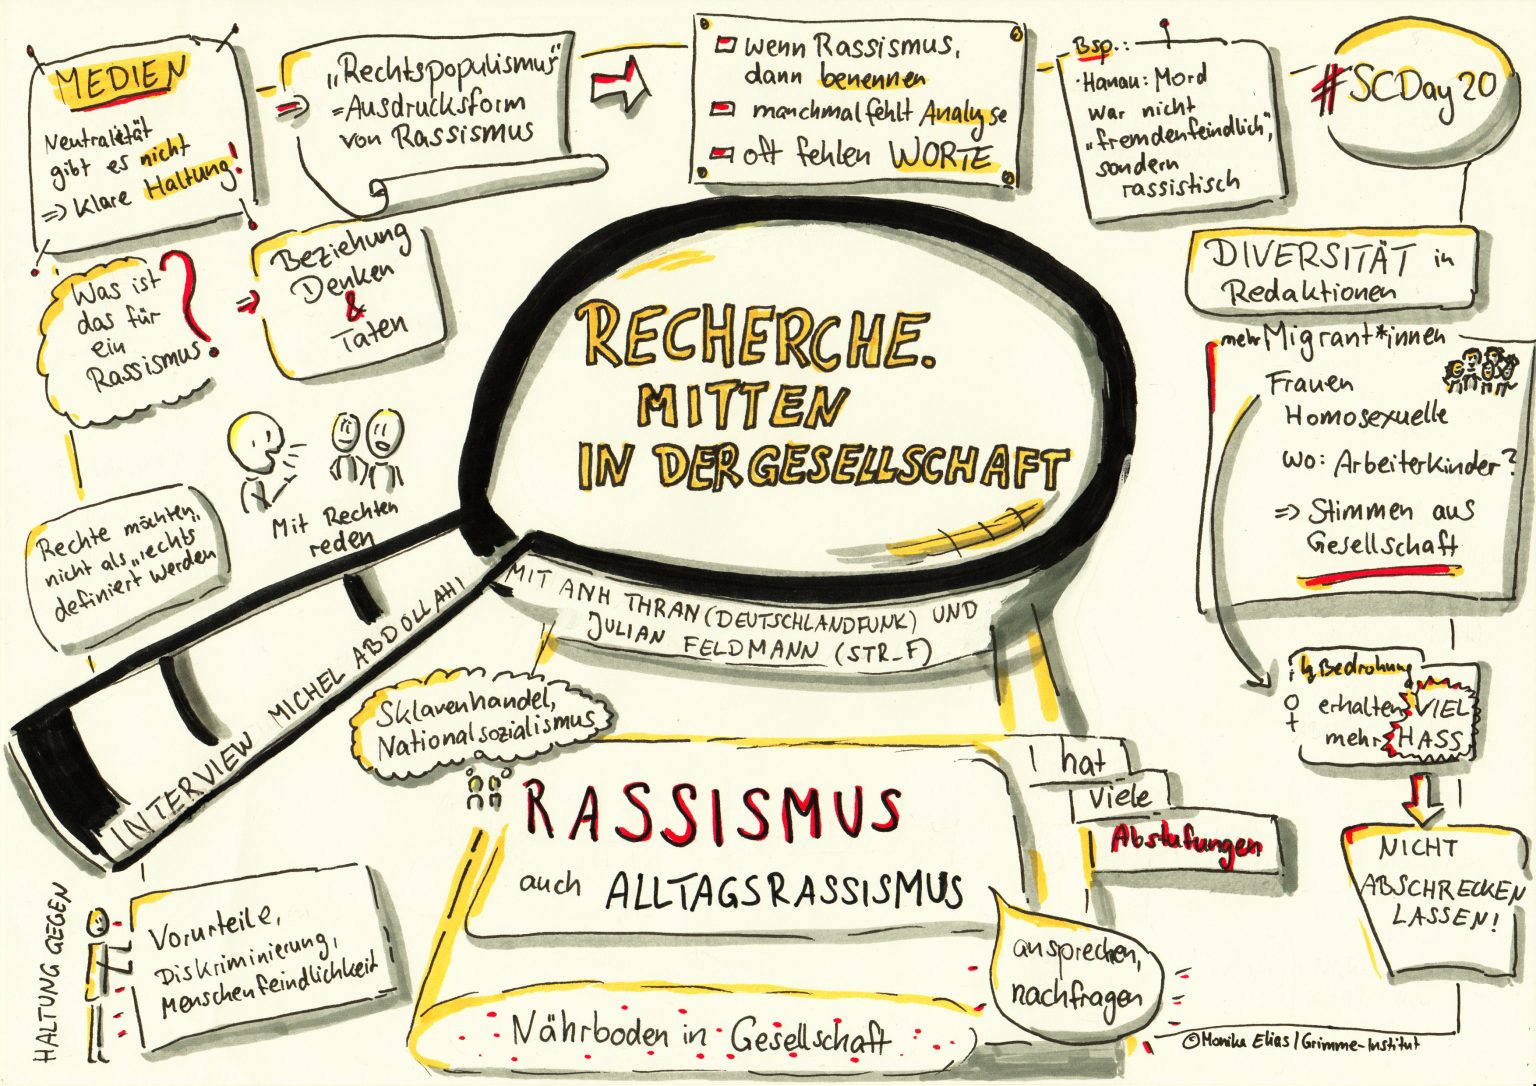 MEDIEN
Neutralität
gibt es nicht
⇒ klare Haltung!
⇒ „Rechtspopulismus“
=Ausdrucksform
von Rassismus
wenn Rassismus,
dann benennen
manchmal fehlt Analyse
oft fehlen WORTE
Bsp.:
·Hanau: Mord
war nicht
„fremdenfeindlich“,
sondern
rassistisch
#SCDay20
Was ist
das für
ein
Rassismus?
⇒ Beziehung
Denken
&
Taten
RECHERCHE.
MITTEN
IN DER GESELLSCHAFT
DIVERSITÄT in
Redaktionen
mehr Migrant*innen
Frauen
Homosexuelle
wo: Arbeiterkinder?
⇒ Stimmen aus
Gesellschaft
Mit Rechten
reden
Rechte möchten
nicht als „rechts“
definiert werden
INTERVIEW MICHEL ABDOLLAHI
MIT ANH THRAN (DEUTSCHLANDFUNK) UND
JULIAN FELDMANN (STR_F)
Bedrohung
♀ erhalten VIEL
mehr HASS
NICHT
ABSCHRECKEN
LASSEN!
Sklavenhandel,
Nationalsozialismus
RASSISMUS
auch ALLTAGSRASSISMUS
hat
viele
Abstufungen
ansprechen,
nachfragen
Nährboden in Gesellschaft
HALTUNG GEGEN
Vorurteile,
Diskriminierung,
Menschenfeindlichkeit
©Monika Elias/Grimme-Institut